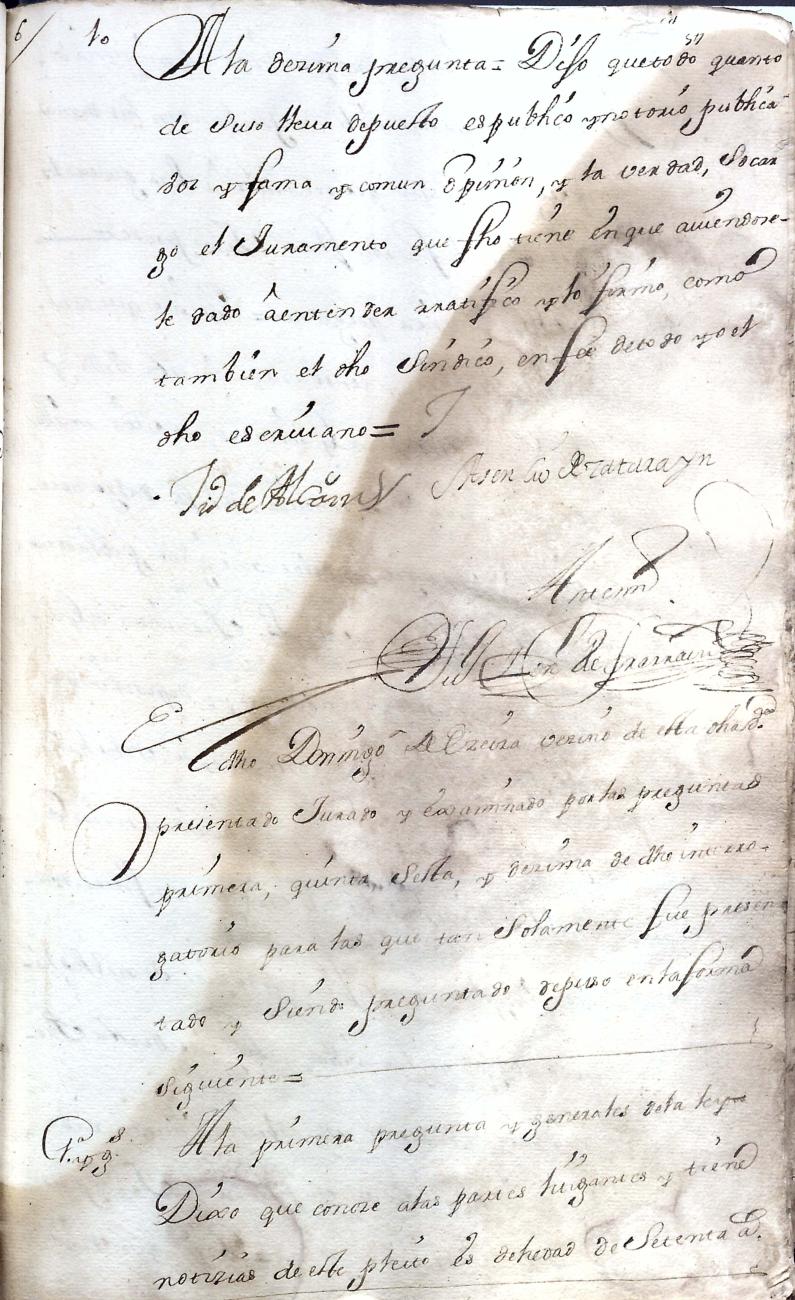 6/ 10 A la dezima pregunta = Dijo que todo quanto
de suso lleva depuesto es publico y notorio publica
voz y fama y comun opinion, y la verdad, so car
go el Juramento que fho tiene en que aviendose-
le dado â entender rratifico y lo firmo, como
tambien el dho Sindico, en fee de todo yo el
dho escrivano =
Asencio
Antemi
dho Domingo de vezino de esta dha
presentado Jurado y examinado por las preguntas
primera, quinta sesta, y dezima de dho interro-
gatorio para las que tan solamente fue presen
tado y siendo preguntado depuso en la forma
siguiente =
A la primera pregunta y generales de la ley
Dixo que conoze a las partes litigantes y tiene
notizias de este pleito es de hedad de setenta a.